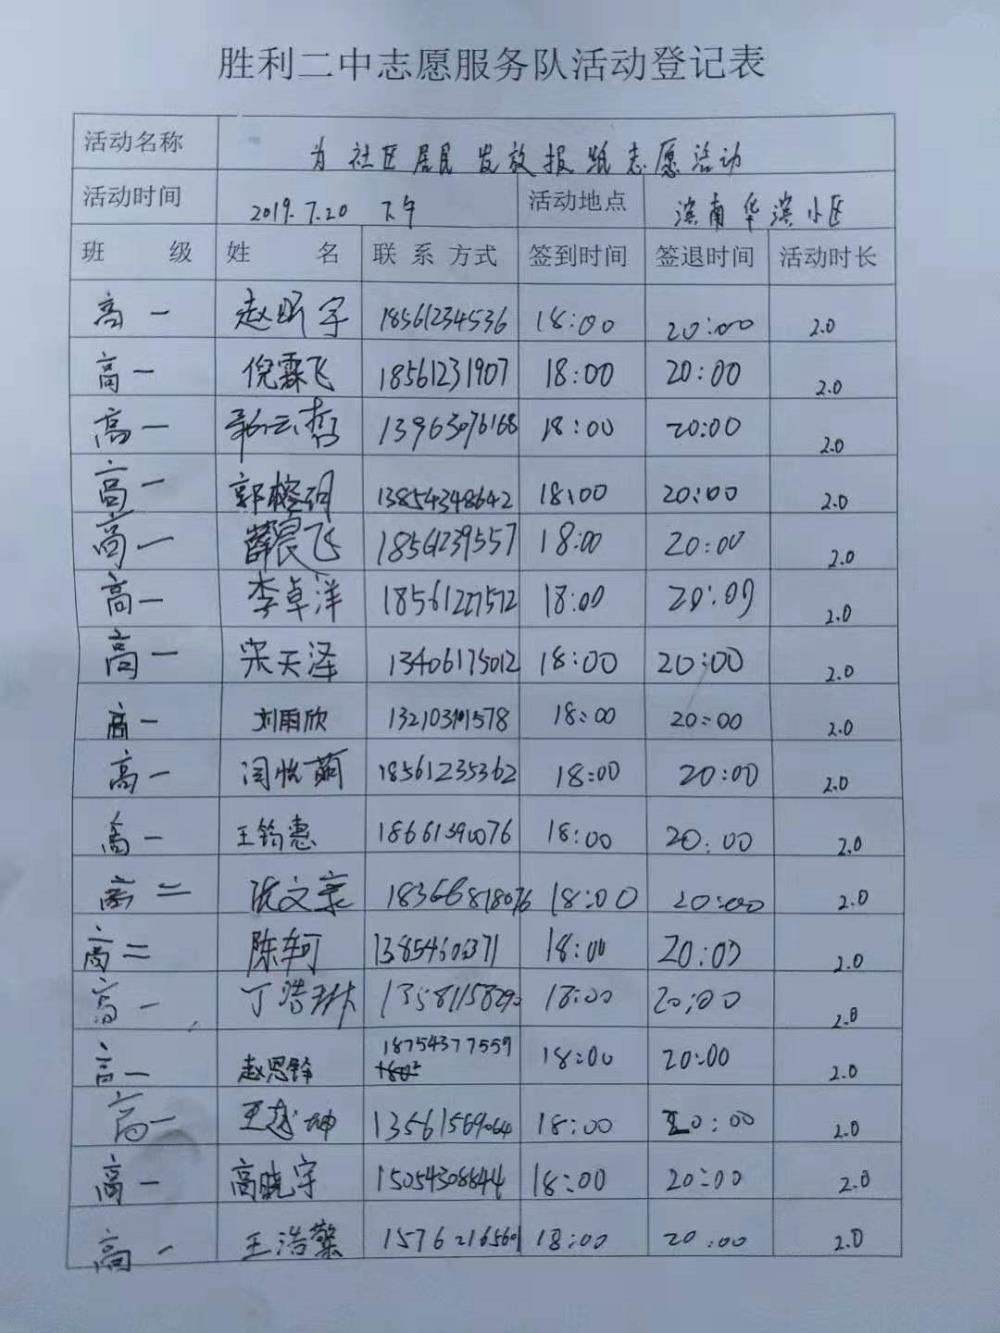 胜利二中志愿服务队活动登记表
活动名称 为社区居民发放报纸志愿活动
活动时间 2019.7.20 下午 活动地点 滨南华滨小区
班 级 姓 名 联 系 方式 签到时间 签退时间 活动时长
高一 赵昕宇 18561234536 18:00 20:00 2.0
高一 倪霖飞 18561231907 18:00 20:00 2.0
高一 郭云哲 13963076168 18:00 20:00 2.0
高一 郭榕玥 13854348642 18:00 20:00 2.0
高一 薛晨飞 18561239557 18:00 20:00 2.0
高一 李卓洋 18561227572 18:00 20:00 2.0
高一 宋天泽 13406175012 18:00 20:00 2.0
高一 刘雨欣 18:00 20:00 2.0
高一 闫悦 18561235362 18:00 20:00 2.0
高一 王钧惠 18:00 20:00 2.0
高二 文 18366818076 18:00 20:00 2.0
高二 陈轲 18:00 20:00 2.0
高一 丁浩琳 18:00 20:00 2.0
高一 赵恩锋 18754377559 18:00 20:00 2.0
高一 王越坤 13561569064 18:00 20:00 2.0
高一 高晓宇 15054308644 18:00 20:00 2.0
高一 王浩 18:00 20:00 2.0